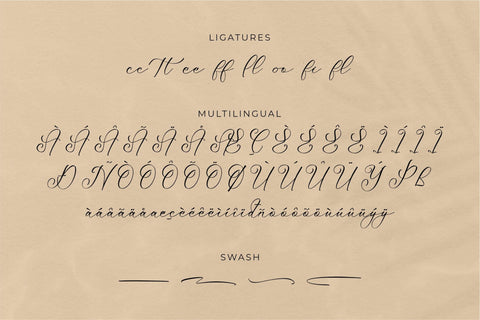 LIGATURES
cc tt ee ff ll oo fi fl
MULTILINGUAL
À Á Â Ã Ä Å Æ Ç È É Ê Ë Ì Í Î Ï
Ð Ñ Ò Ó Ô Õ Ö Ø Ù Ú Û Ü Ý Þ ß
àáâãäåæçèéêëìíîïðñòóôõöùúûüýÿ
SWASH